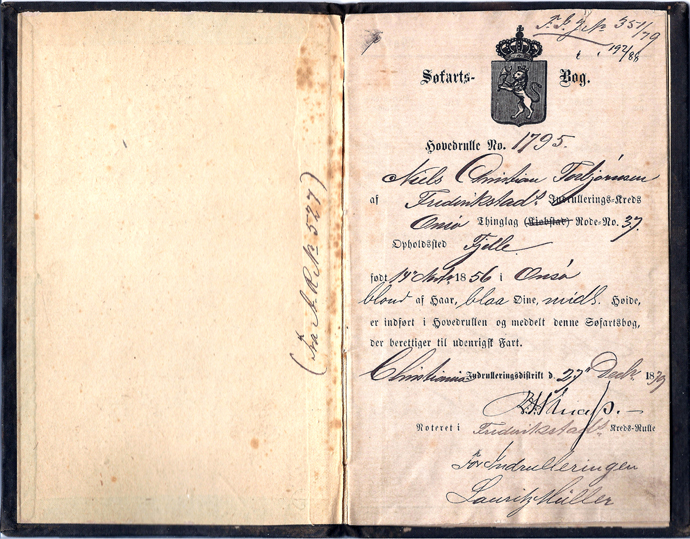 (Fra A. R. No 527)
351/79
192/88
Søfarts-Bog.
Hovedrulle No. 1795.
Niels Christian Torbjørnsen
af Frederikstads Indrullerings-Kreds
Onsø Thinglag (Kjøbstad) Rode-No. 37
Opholdssted Fjelle.
født 17 1856 i Onsø
blond af Haar, blaa Øine, midls. Høide,
er indført i Hovedrullen og meddelt denne Søfartsbog,
der berettiger til udenrigsk Fart.
Christiania Indrulleringsdistrikt d. 27 Decbr. 1879
Noteret i Frederikstads Kreds-Rulle
For Indrulleringen
Lauritz Müller